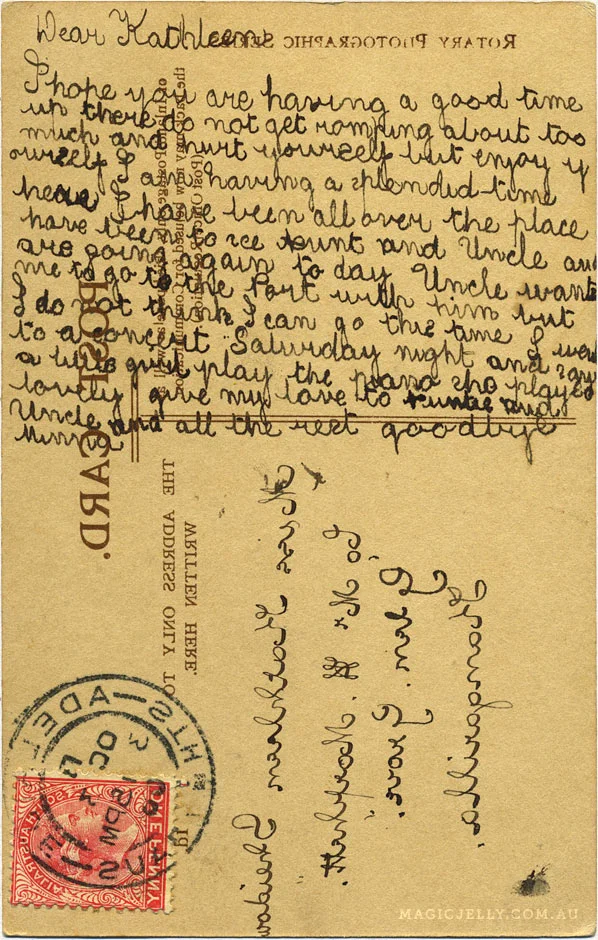 Dear Kathleen
ROTARY PHOTOGRAPHIC SERIES
I hope you are having a good time
up there do not get romping about too
much and hurt yourself but enjoy y
ourself I am having a splendid time
hear I have been all over the place
have been to see Aunt and Uncle and
are going again to day Uncle wants
me to go to the Port with him but
I do not think I can go this time I went
to a concert Saturday night and saw
a little girl play the piano she played
lovely give my love to Auntie and
Uncle and all the rest goodbye
Minnie
POST CARD.
THE ADDRESS ONLY TO
WRITTEN HERE.
Miss Kathleen
To Mr W.
Glen
ONE PENNY
MAGICJELLY.COM.AU